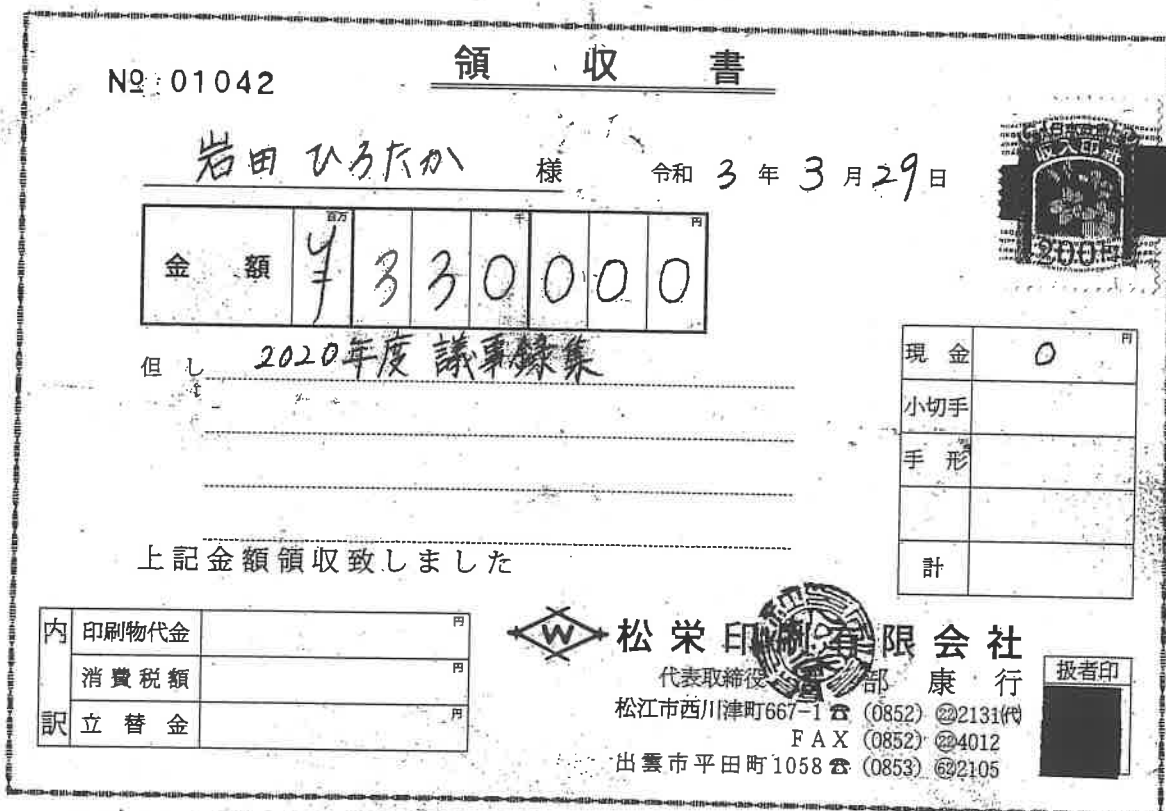 領収書
№ 01042
岩田 ひろたか 様
令和 3 年 3 月 29 日
収入印紙
200円
金額 百万 千 円
¥ 330000
但し 2020年度 議事録集
現金 0 円
小切手
手形
計
上記金額領収致しました
内訳
印刷物代金 円
消費税額 円
立替金 円
W 松栄印刷有限会社
代表取締役 部 康 行
扱者印
松江市西川津町667-1 ☎ (0852) ㉒2131(代)
FAX (0852) ㉒4012
出雲市平田町1058 ☎ (0853) 62 2105